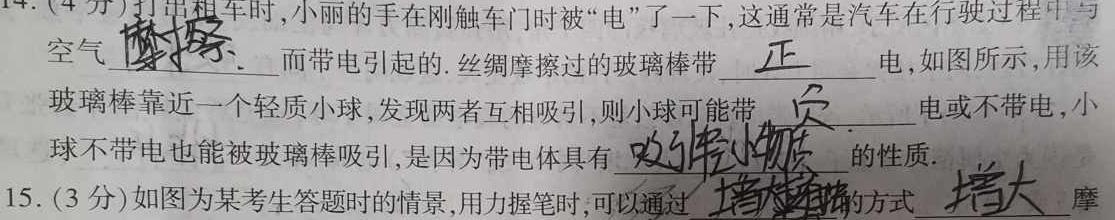 14. (4 分)打出租车时,小丽的手在刚触车门时被“电”了一下,这通常是汽车在行驶过程中与
空气 摩擦 而带电引起的. 丝绸摩擦过的玻璃棒带 正 电,如图所示,用该
玻璃棒靠近一个轻质小球,发现两者互相吸引,则小球可能带 电或不带电,小
球不带电也能被玻璃棒吸引,是因为带电体具有 吸引轻小物质 的性质.
15. (3 分)如图为某考生答题时的情景,用力握笔时,可以通过 增大 的方式 增大 摩